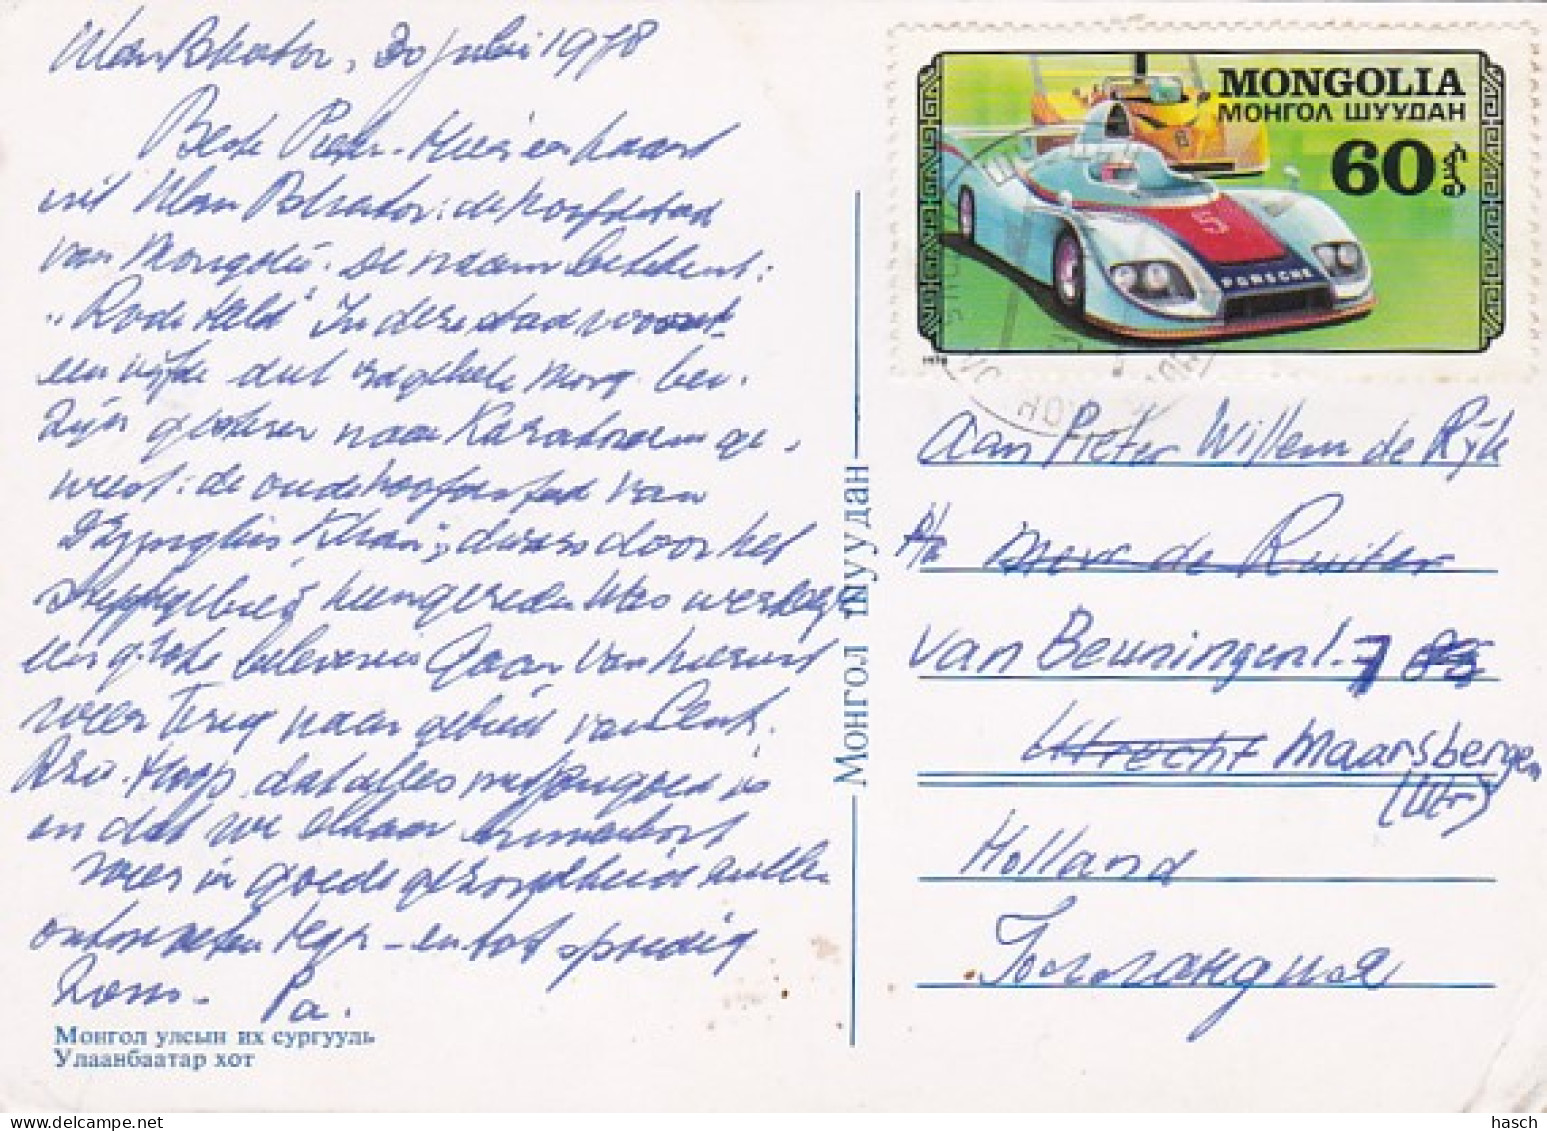 Ulan Bator, 20 juli 1978
Beste Pieter - Hier een kaart
uit Ulan Bator: de hoofdstad
van Mongolië. De naam betekent:
"Rode Held" In deze stad woont
een vijfde deel van de Mong. bev.
Zijn gisteren naar Karakorum ge-
weest: de oude hoofdstad van
Dzjengis Khan, dwars door het
steppegebied heengereden
een grote belevenis Gaan van hieruit
weer terug naar gebied van Cent.
Azië. Hoop dat alles met jou goed is
en dat we elkaar
weer in goede gezondheid zullen
ontmoeten - en tot spoedig
Zoen - Pa.
Монгол улсын их сургууль
Улаанбаатар хот
Монгол шуудан
MONGOLIA
МОНГОЛ ШУУДАН
60
5
PORSCHE
1978
Aan Pieter Willem de Rijk
p/a Mevr de Ruiter
van Beuningenl. 7
Utrecht Maarsbergen
(Utr)
Holland
Голландия
hasch